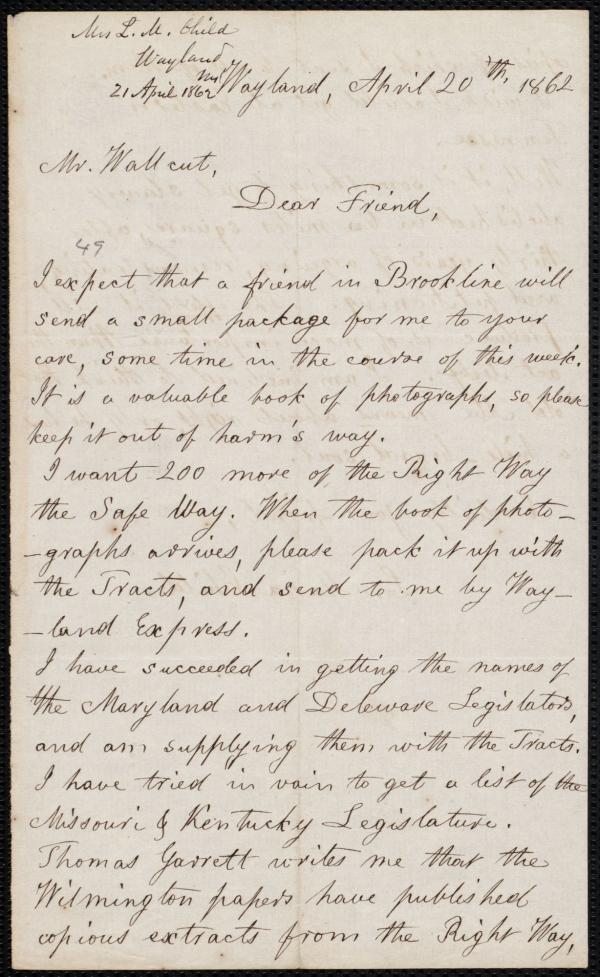 Mrs L. M. Child
Wayland
Ms
21 April 1862
Wayland, April 20th, 1862
Mr. Wallcut,
Dear Friend,
49
I expect that a friend in Brookline will
send a small package for me to your
care, some time in the course of this week.
It is a valuable book of photographs, so please
keep it out of harm's way.
I want 200 more of the Right Way
the Safe Way. When the book of photo-
-graphs arrives, please pack it up with
the Tracts, and send to me by Way-
-land Express.
I have succeeded in getting the names of
the Maryland and Deleware Legislators,
and am supplying them with the Tracts.
I have tried in vain to get a list of the
Missouri & Kentucky Legislature.
Thomas Garrett writes me that the
Wilmington papers have published
copious extracts from the Right Way,